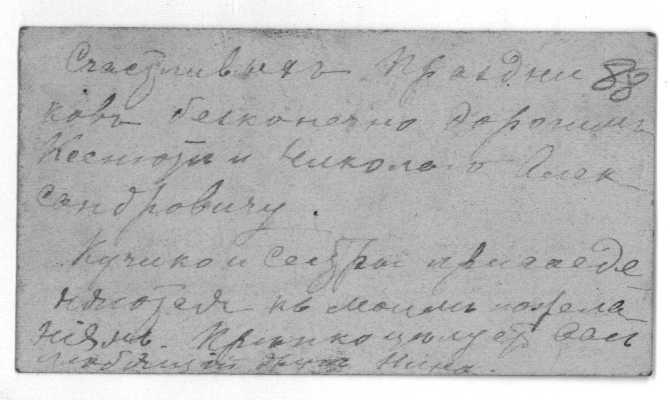 Счастливыхъ Праздни 88
ковъ безконечно дорогимъ
и Николаю Алек
сандровичу.
и сестры присоеди
няются къ моимъ пожела
ніямъ. Крѣпко цѣлуетъ Васъ
любящій другъ Нина.